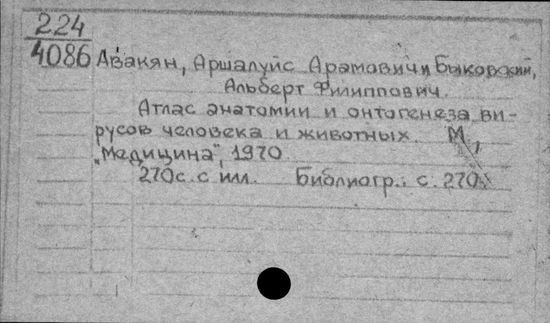 224
4086 Авакян, Аршалуйс Арамович и Быковский,
Альберт Филиппович.
Атлас анатомии и онтогенеза ви-
русов человека и животных. М.,
"Медицина", 1970.
270с. с илл. Библиогр.: с. 270